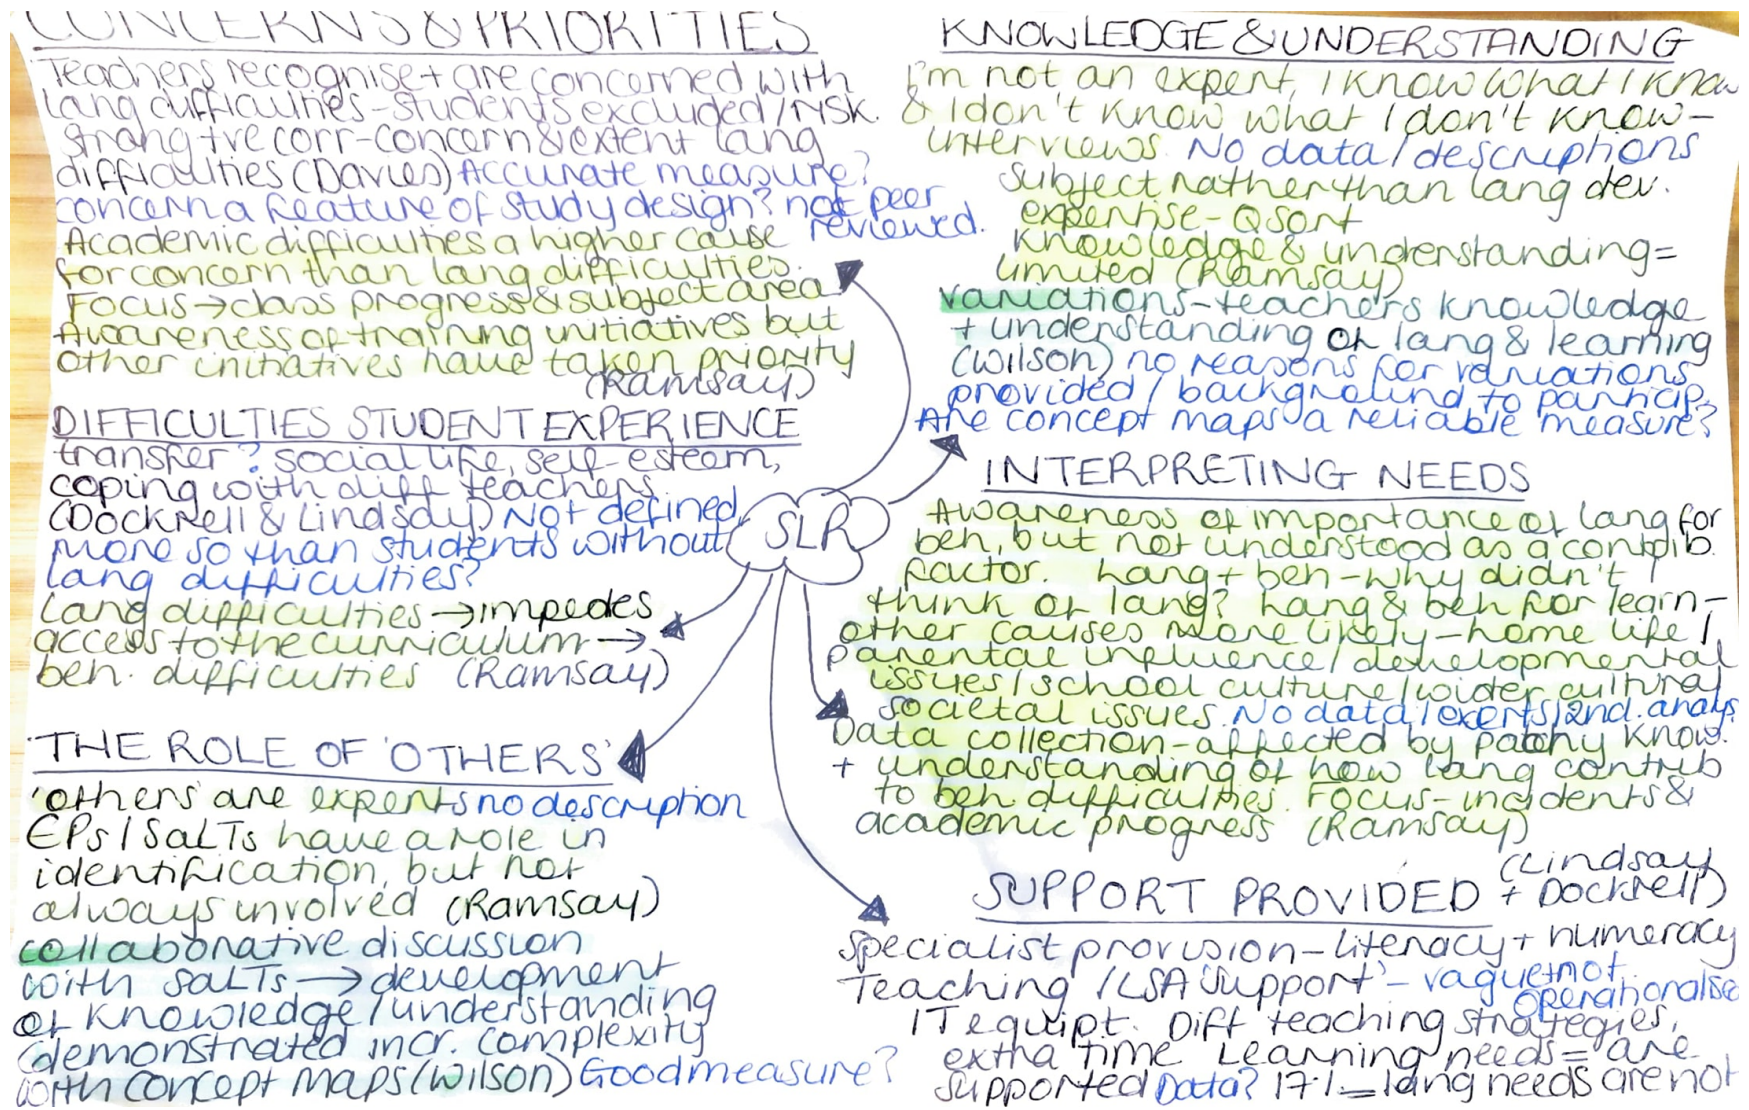 CONCERNS & PRIORITIES
Teachers recognise + are concerned with
lang difficulties - students excluded / risk.
strong +ve corr - concern & extent lang
difficulties (Davies) Accurate measure?
concern a feature of study design? not peer
reviewed.
Academic difficulties a higher cause
for concern than lang difficulties.
Focus → class progress & subject area
Awareness of training initiatives but
other initiatives have taken priority
(Ramsay)
DIFFICULTIES STUDENT EXPERIENCE
transfer? social life, self-esteem,
coping with diff teachers
(Dockrell & Lindsay) Not defined
more so than students without
lang difficulties?
Lang difficulties → impedes
access to the curriculum →
beh. difficulties (Ramsay)
THE ROLE OF 'OTHERS'
'others' are experts no description
EPs / SaLTs have a role in
identification, but not
always involved (Ramsay)
collaborative discussion
with SaLTs → development
of knowledge / understanding
(demonstrated incr. complexity
with concept maps (Wilson) Good measure?
SLR
KNOWLEDGE & UNDERSTANDING
I'm not an expert, I know what I know
& I don't know what I don't know -
interviews. No data / descriptions
Subject rather than lang dev.
expertise - Q sort
Knowledge & understanding =
limited (Ramsay)
variations - teachers knowledge
+ understanding of lang & learning
(Wilson) no reasons for variations
provided / background to particip.
Are concept maps a reliable measure?
INTERPRETING NEEDS
Awareness of importance of lang for
beh, but not understood as a contrib.
factor. Lang + beh - why didn't I
think of lang? Lang & beh for learn -
other causes more likely - home life /
parental influence / developmental
issues / school culture / wider cultural
societal issues. No data / exerts / 2nd. analys
Data collection - affected by patchy know.
+ understanding of how lang contrib
to beh difficulties. Focus - incidents &
academic progress (Ramsay)
SUPPORT PROVIDED (Lindsay
+ Dockrell)
Specialist provision - literacy + numeracy
Teaching / LSA 'support' - vague + not
operationalise
IT equipt. Diff teaching strategies,
extra time Learning needs = are
supported Data? 17% = lang needs are not